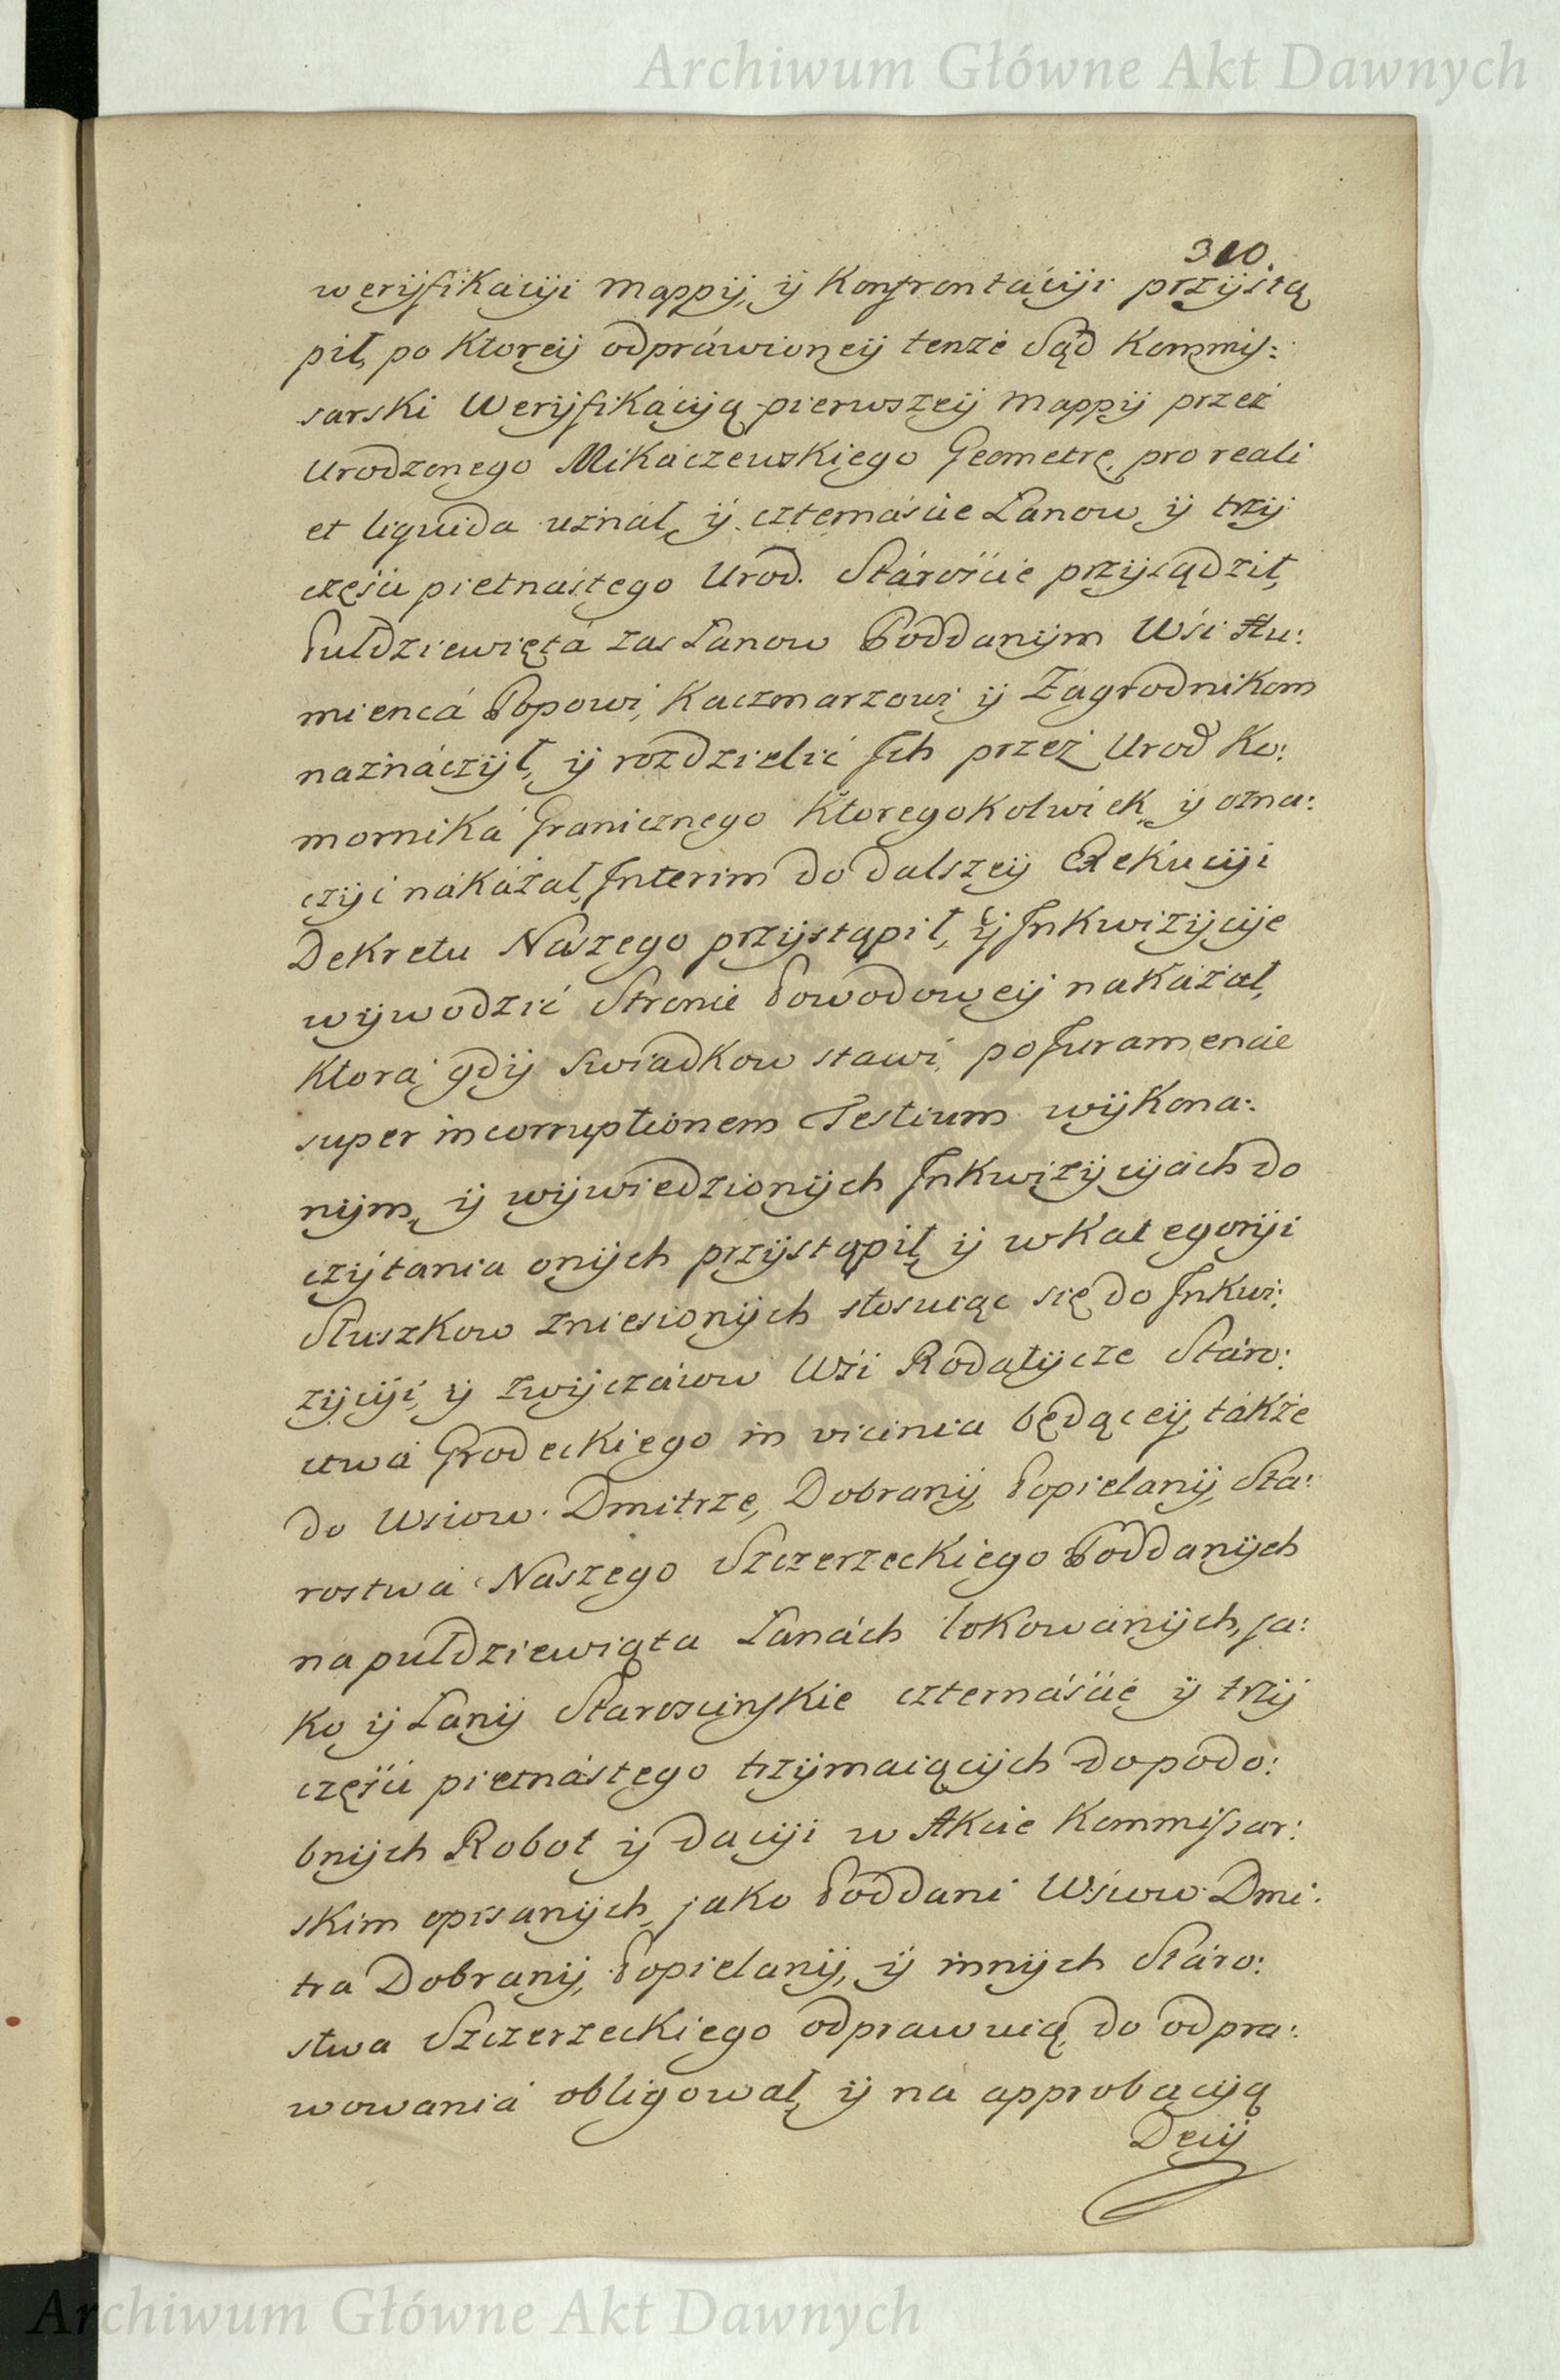 Archiwum Główne Akt Dawnych
310.
weryfikacyi mappy, y Konfrontácyi przystą
pił, po Ktorey odpráwioney tenże Sąd Kommis:
sarski Weryfikácyą pierwszey Mappy przez
Urodzonego Mikaczewskiego Geometrę, pro reali
et liquida uznał, y czternáscie Łanow y trzy
częsci pietnástego Urod. Stárosćie przysądził,
Pułdziewięta zas Łanow Poddanym Wśi Hu:
mienca Popowi, Kaczmarzowi y Zagrodnikom
naznáczył, y rozdzielić Ich przez Urod Ko:
mornika Granicznego Ktoregokolwiek, y ozna:
czyć nákázał, Interim do dalszey Exekucyi
Dekretu Naszego przystąpił, y Inkwizycye
wywodzić Stronie Powodowey nakázał,
Ktora gdy swiadkow stawi, po Juramencie
super incorruptionem Testium wykona:
nym, y wywiedzionych Inkwizycyách do
czytania onych przystąpił, y w Kategoryi
Stuszkow zniesionych stosuiąc się do Inkwi:
zycyi, y zwyczáiow Wśi Rodatycze Stáro:
stwa Grodeckiego in vicinia będącey, tákże
do Wsiow Dmitrze, Dobrany, Popielany, Sta:
rostwá Naszego Szczerzeckiego Poddanych
na pułdziewiąta Łanách lokowánych, ja:
ko y Łany Staroscinskie czternáśćie y trzy
częśći pietnástego trzymaiących do podo:
bnych Robot y dacyi w Akcie Kommissar:
skim opisanych, jako Poddani Wsiow Dmi:
tra Dobrany, Popielany, y innych Stáro:
stwa Szczerzeckiego odprawuią, do odpra:
wowania obligował, y ná approbacyą
Decy
Archiwum Główne Akt Dawnych